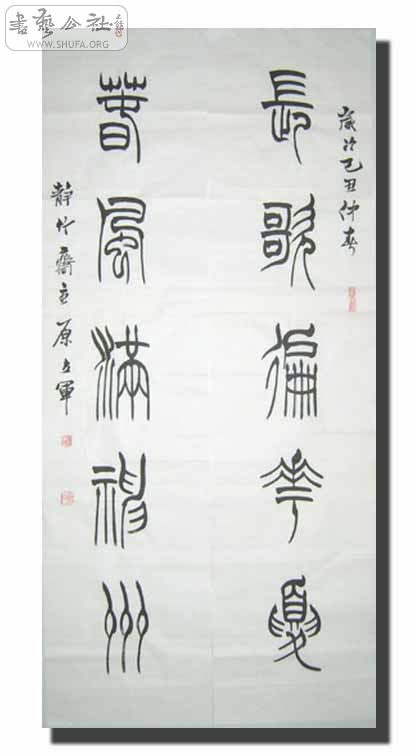 書藝公社
WWW.SHUFA.ORG
歲次己丑仲春
長歌徧華夏
春風滿神州
靜竹齋主原軍